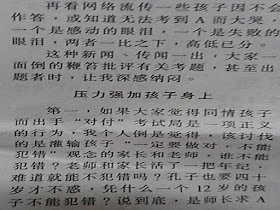 再看网络流传一些孩子因不会
作答，或知道无法考到A而大哭，
一个是感动的眼泪，一个是失败的
眼泪，两者一比之下，高低已分。
这种新闻、传闻一出，大家一
面倒的鞭笞批评有关考题，甚至出
题者时，让我深感纳闷。
压力强加孩子身上
第一，如果大家觉得同情孩子
而出手“对付”考试局是一项正义
的行为，我个人倒是觉得，该讨伐
的是灌输孩子“一定要做对，不能
犯错”观念的家长和老师，谁不能
犯错？老师和家长活了一把年纪，
难道就能不犯错吗？孔子也要四十
岁才不惑，凭什么一个12岁的孩
子不能犯错？说到底，是师长求A